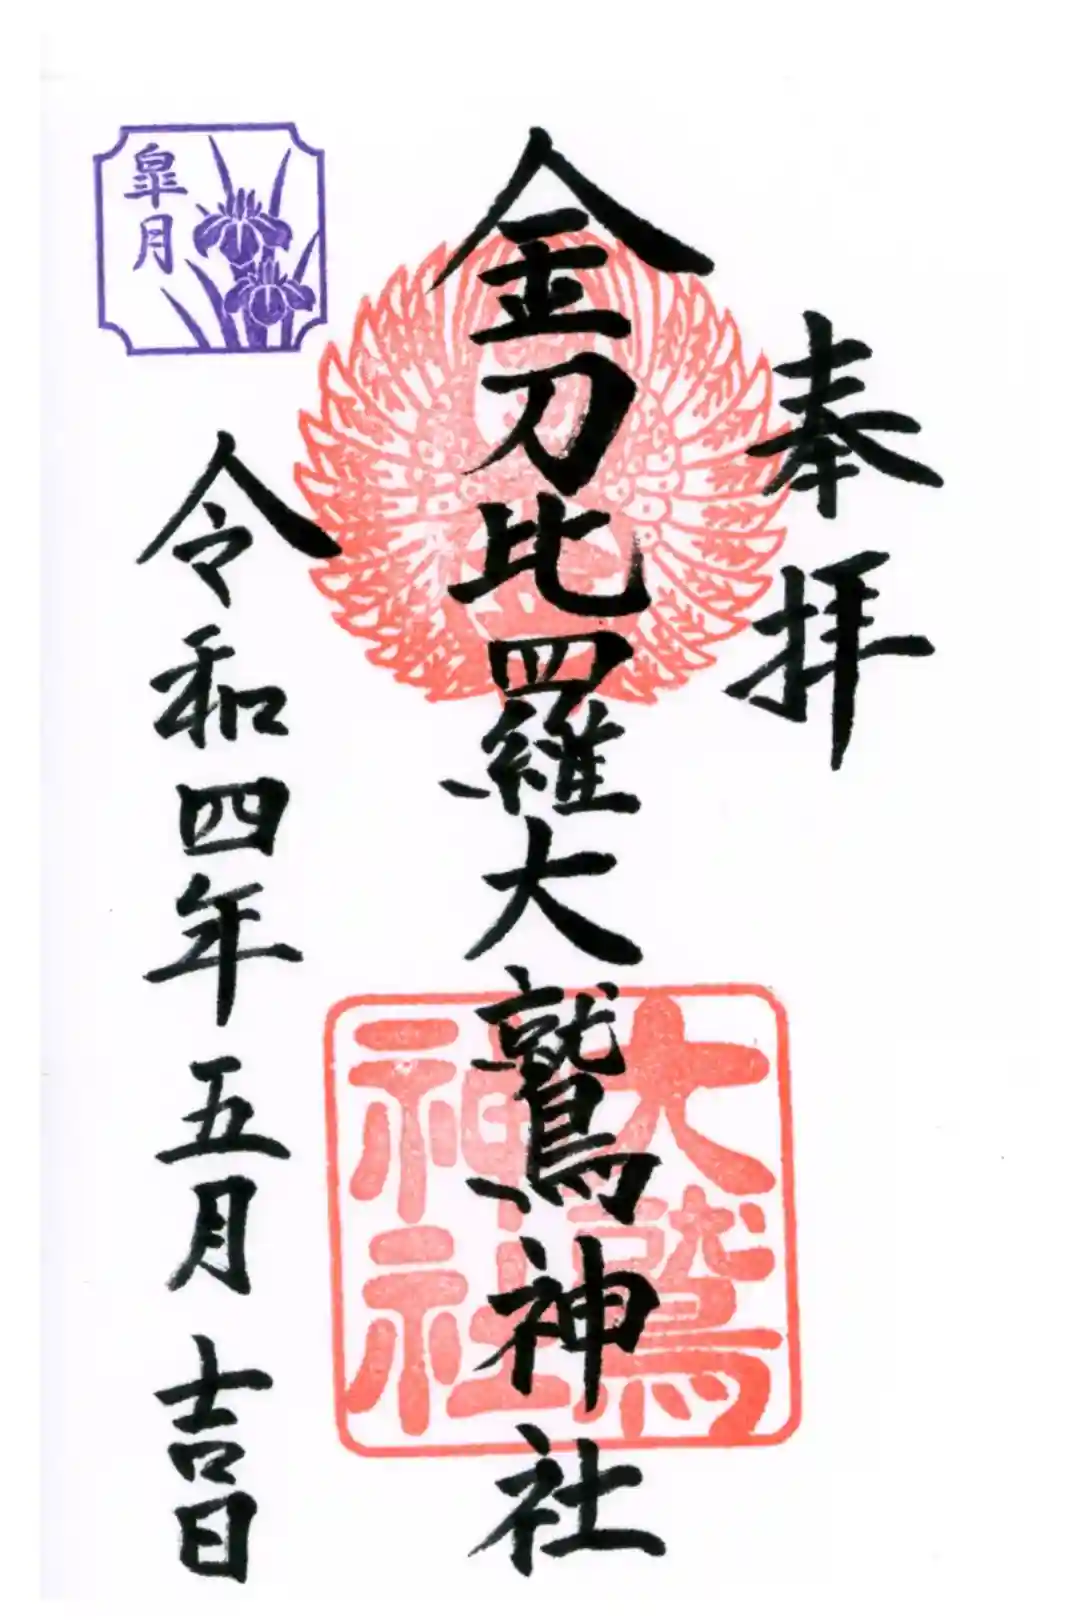 奉拝
金刀比羅大鷲神社
大鷲
神社
皐月
令和四年五月吉日